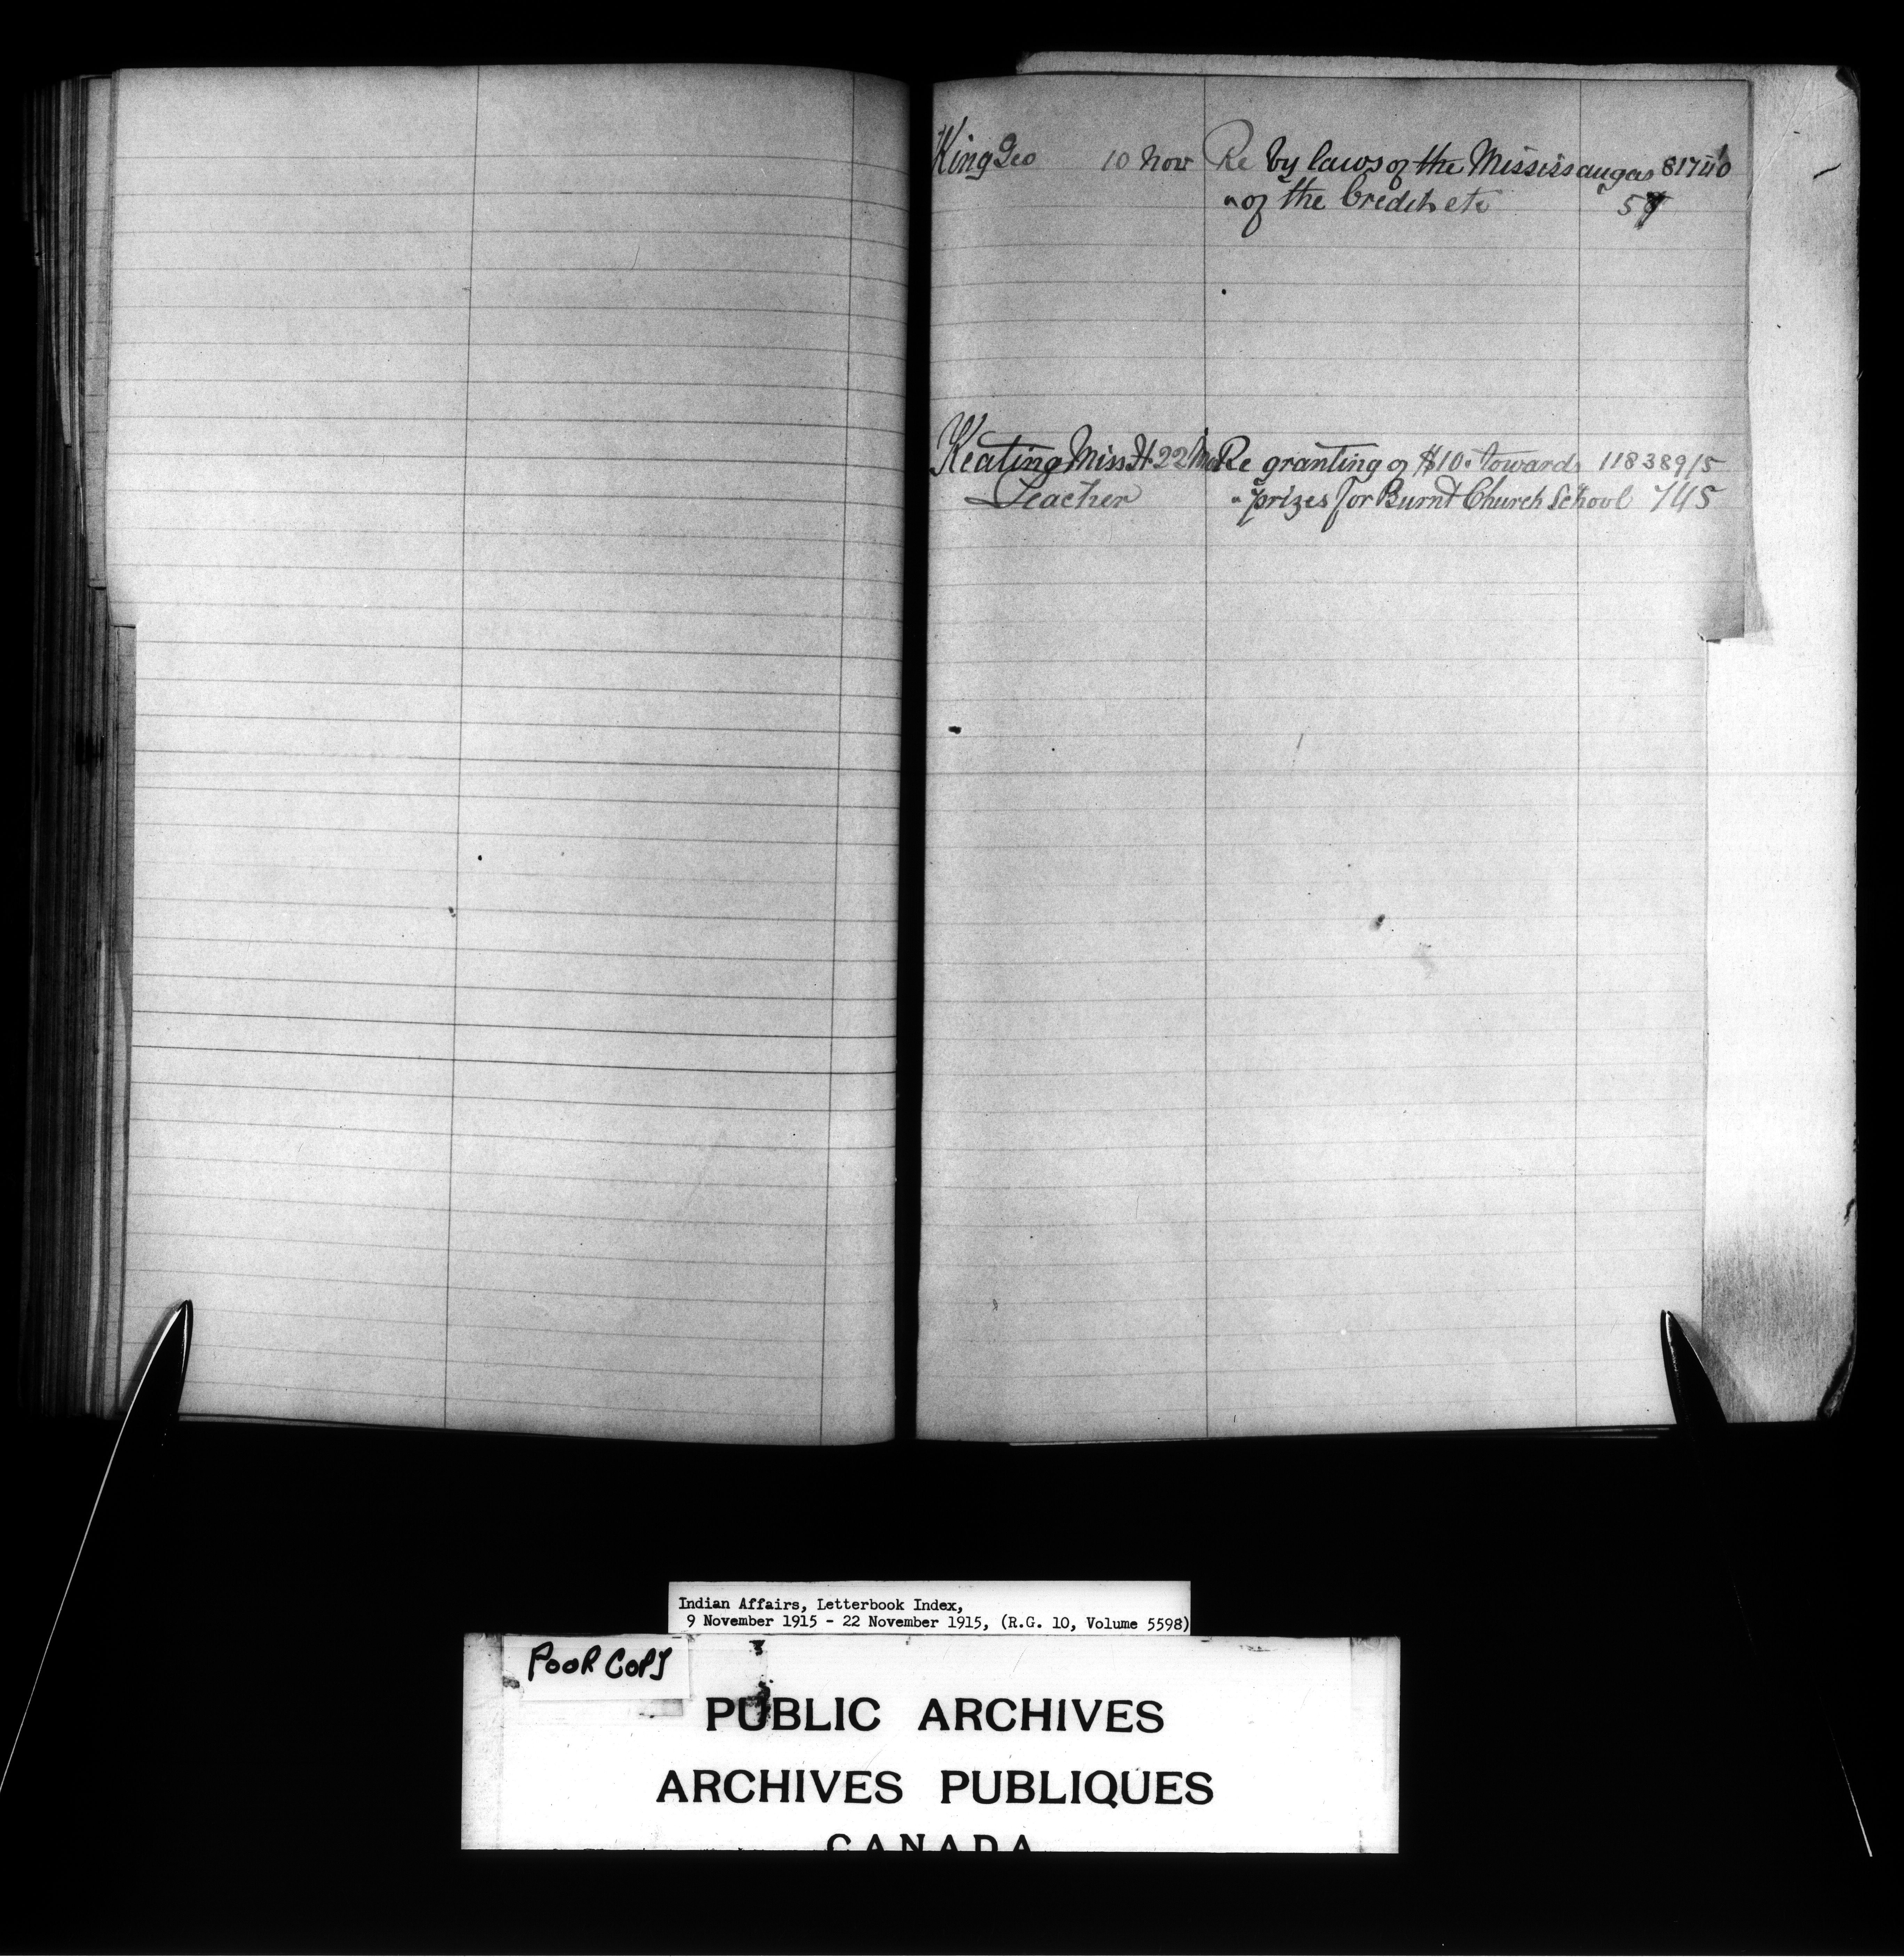 King Geo 10 Nov Re by laws of the Mississaugas 81740
" of the Credit etc 57
Keating Miss H 22 Nov Re granting of $10. towards 118389/5
Teacher " prizes for Burnt Church School 745
Indian Affairs, Letterbook Index,
9 November 1915 - 22 November 1915, (R.G. 10, Volume 5598)
POOR COPY
PUBLIC ARCHIVES
ARCHIVES PUBLIQUES
CANADA